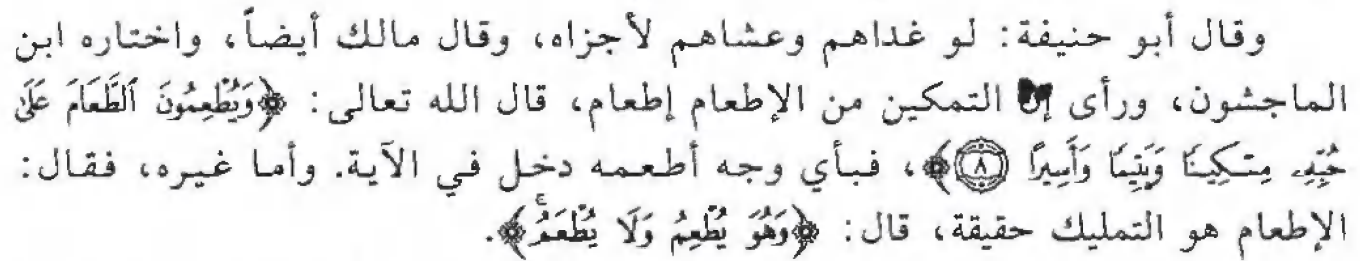 وقال أبو حنيفة: لو غداهم وعشاهم لأجزاه، وقال مالك أيضاً، واختاره ابن
الماجشون، ورأى إن التمكين من الإطعام إطعام، قال الله تعالى: ﴿وَيُطْعِمُونَ ٱلطَّعَامَ عَلَىٰ
حُبِّهِۦ مِسْكِينًا وَيَتِيمًا وَأَسِيرًا ۝٨﴾، فبأي وجه أطعمه دخل في الآية. وأما غيره، فقال:
الإطعام هو التمليك حقيقة، قال: ﴿وَهُوَ يُطْعِمُ وَلَا يُطْعَمُ ۗ﴾.